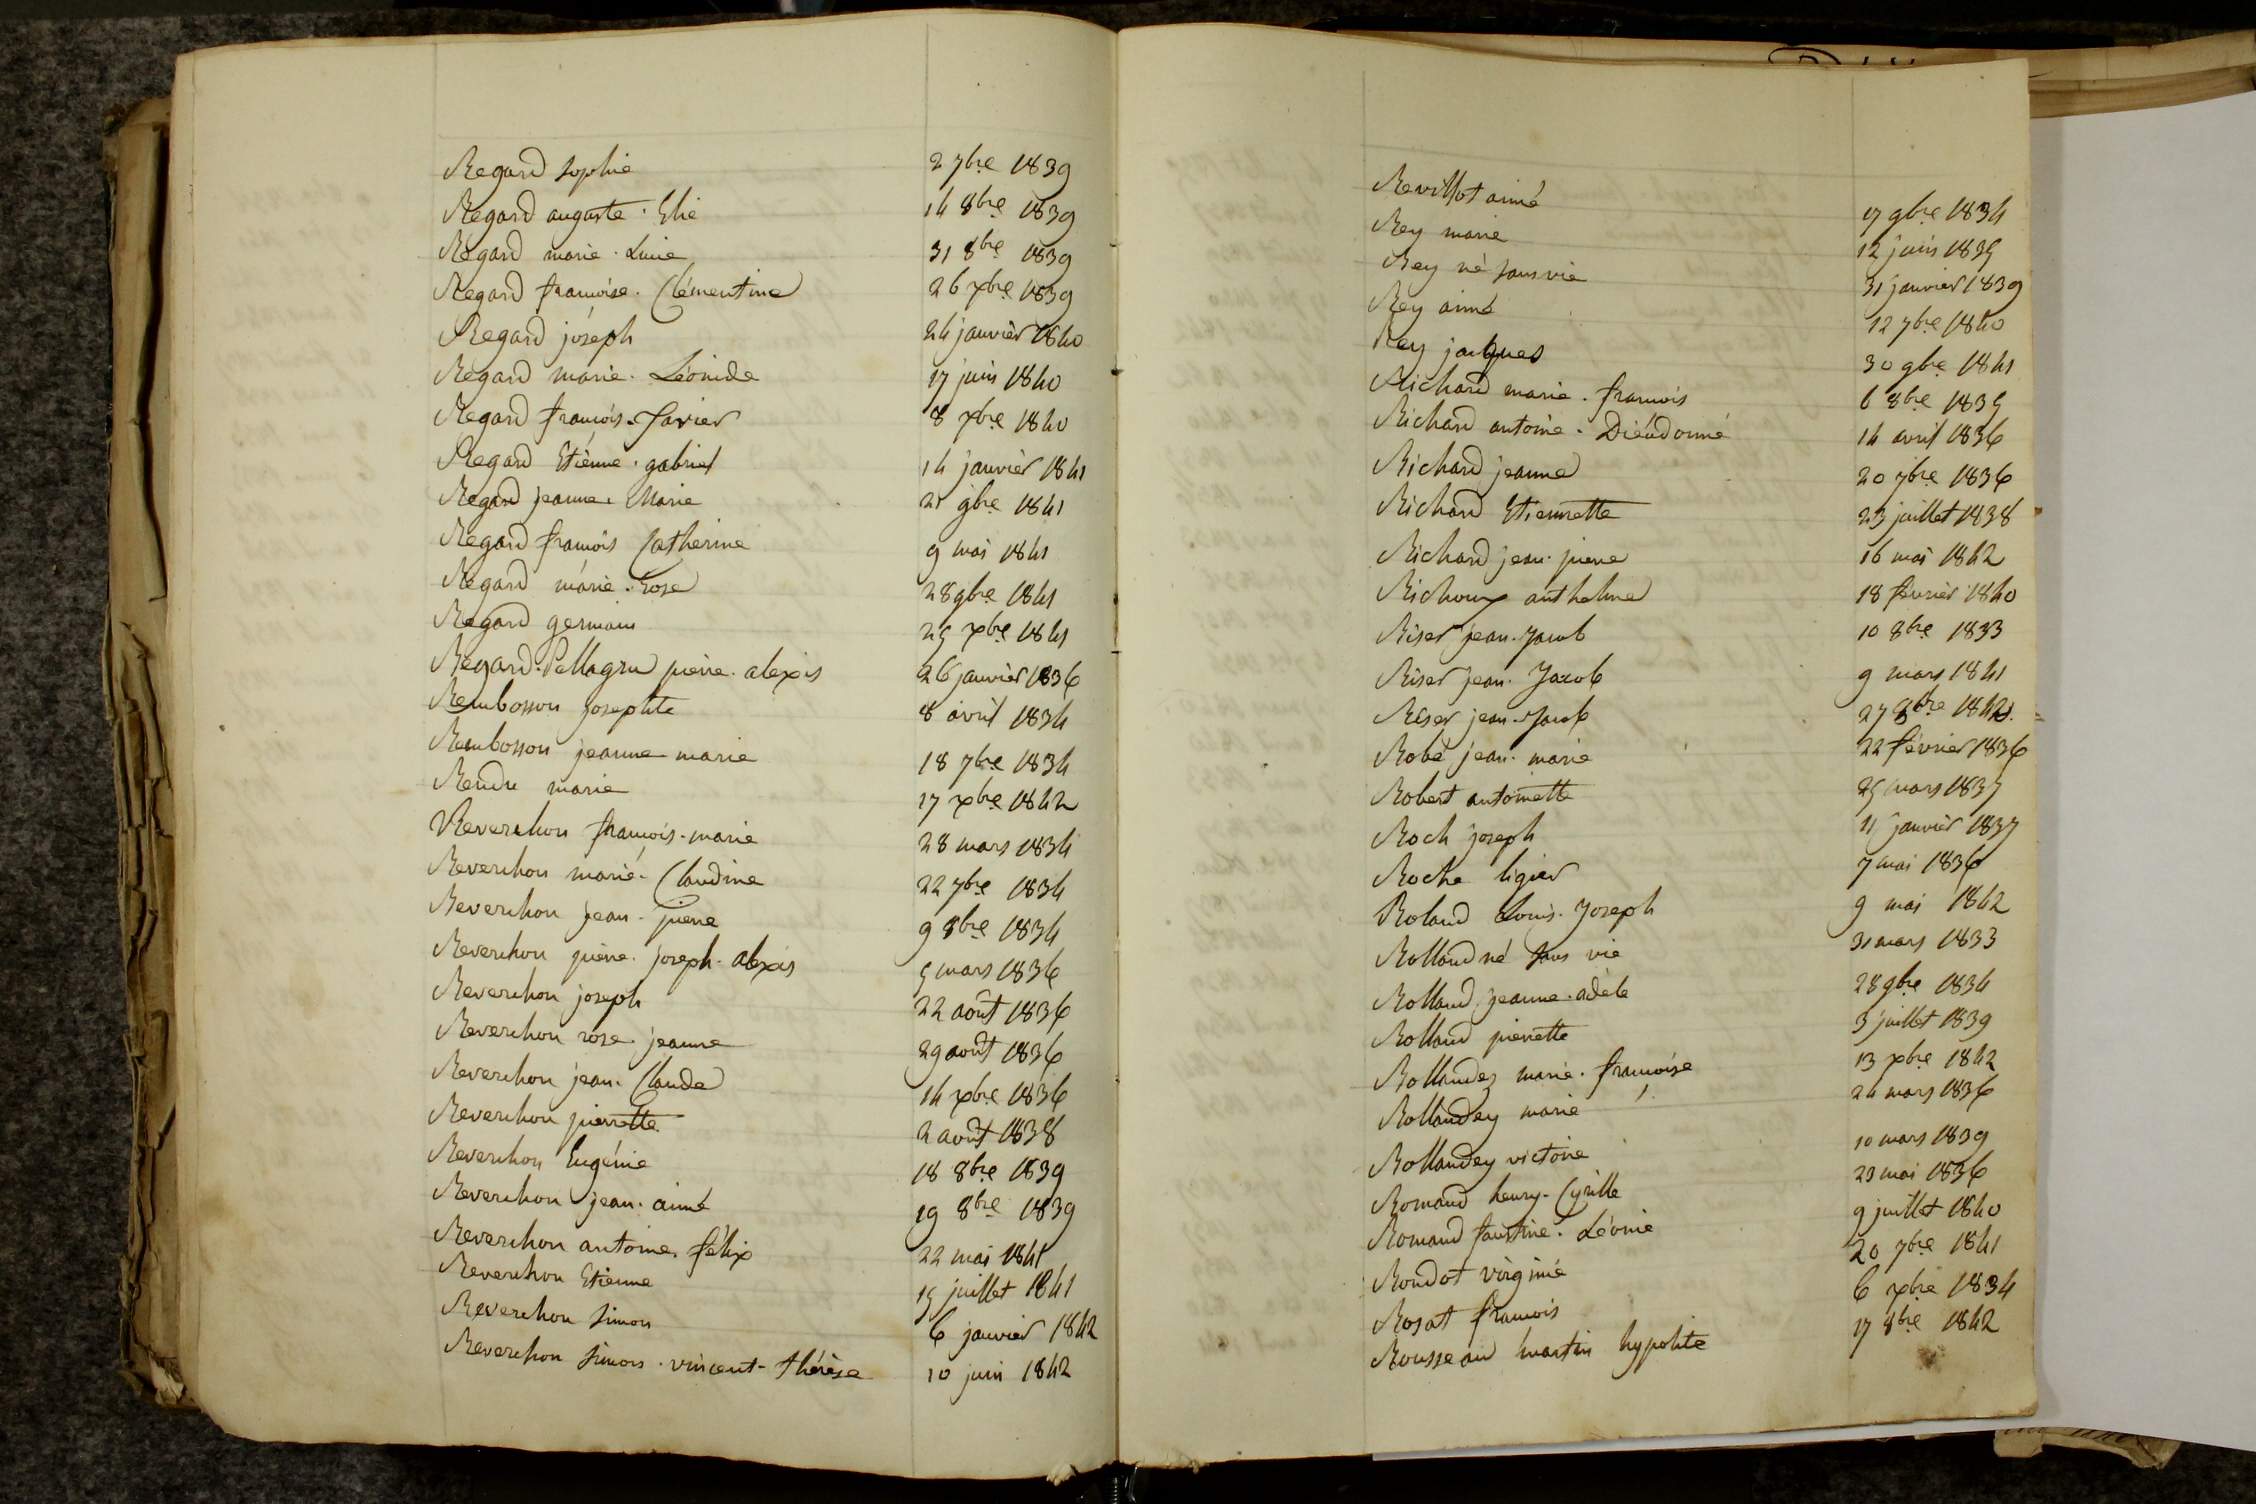 Regard sophie 2 7bre 1839
Regard auguste. Elie 14 8bre 1839
Regard marie. Lucie 31 8bre 1839
Regard francoise. Clémentine 26 xbre 1839
Regard joseph 24 janvier 1840
Regard marie. Léonide 17 juin 1840
Regard francois. Xavier 8 xbre 1840
Regard Etienne. gabriel 14 janvier 1841
Regard jeanne. Marie 21 9bre 1841
Regard francois Catherine 9 mai 1841
Regard marie. Rose 28 9bre 1841
Regard germain 25 xbre 1841
Regard. Pellagru pierre. alexis 26 janvier 1836
Rembosson josephte 8 avril 1834
Rembosson jeanne marie 18 7bre 1834
Rendu marie 17 xbre 1842
Reverchon francois. marie 28 mars 1834
Reverchon marie. Claudine 22 7bre 1834
Reverchon jean. pierre 9 8bre 1834
Reverchon pierre. joseph. alexis 5 mars 1836
Reverchon joseph 22 août 1836
Reverchon rose. jeanne 29 août 1836
Reverchon jean. Claude 14 xbre 1836
Reverchon pierrette 2 août 1838
Reverchon Eugénie 18 8bre 1839
Reverchon jean. aimé 19 8bre 1839
Reverchon antoine. félix 22 mai 1841
Reverchon Etienne 15 juillet 1841
Reverchon simon 6 janvier 1842
Reverchon simon. vincent. thérèse 10 juin 1842
Revillot aimé 17 9bre 1834
Rey marie 12 juin 1835
Rey né sans vie 31 janvier 1839
Rey aimé 12 7bre 1840
Rey jacques 30 9bre 1841
Richard marie. francois 6 8bre 1835
Richard antoine. Dieudonné 14 avril 1836
Richard jeanne 20 7bre 1836
Richard Etiennette 23 juillet 1838
Richard jean. pierre 16 mai 1842
Richoux anthelme 18 février 1840
Riser jean. Jacob 10 8bre 1833
Riser jean. Jacob 9 mars 1841
Riser jean. Jacob 27 8bre 1842
Robé jean. marie 22 février 1836
Robert antoinette 25 mars 1837
Roch joseph 11 janvier 1837
Roche ligier 7 mai 1836
Roland Louis. Joseph 9 mai 1842
Rolland né sans vie 31 mars 1833
Rolland jeanne. adèle 28 9bre 1834
Rolland pierrette 3 juillet 1839
Rollandez marie. francoise 13 xbre 1842
Rollandey marie 24 mars 1836
Rollandey victoire 10 mars 1839
Romand henry. Cyrille 23 mai 1836
Romand faustine. Léonie 9 juillet 1840
Rondot virginie 20 7bre 1841
Rosat francois 6 xbre 1834
Rousseau martin hypolite 17 8bre 1842